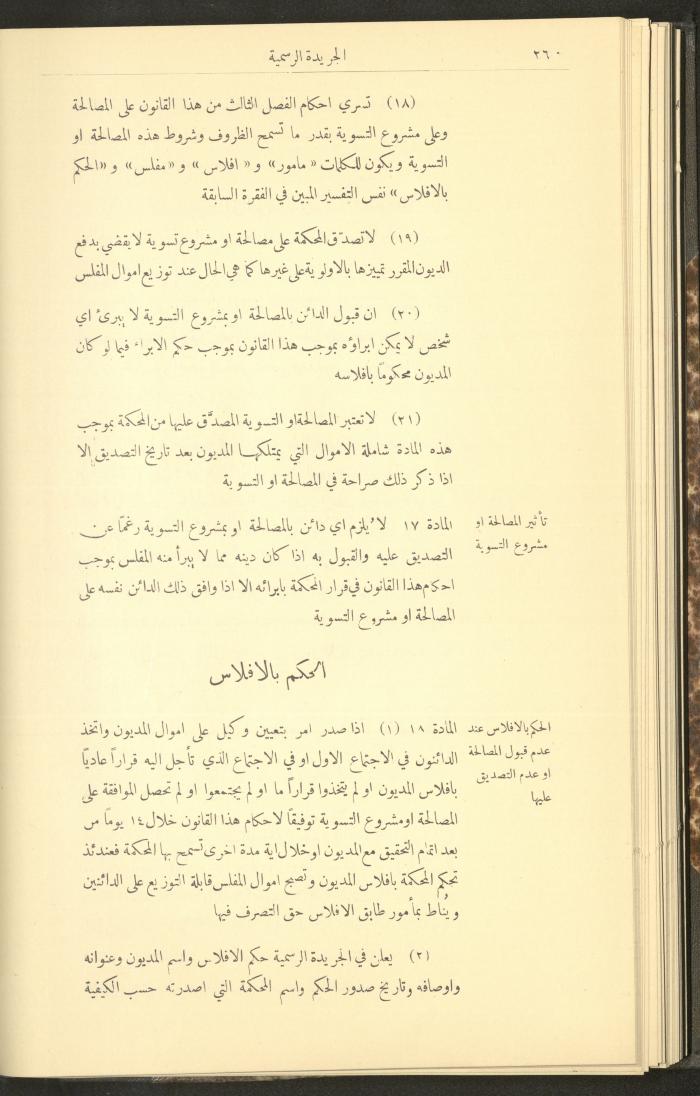 ٢٦٠
الجريدة الرسمية
(١٨) تسري احكام الفصل الثالث من هذا القانون على المصالحة
وعلى مشروع التسوية بقدر ما تسمح الظروف وشروط هذه المصالحة او
التسوية ويكون للكلمات «مامور» و «افلاس» و «مفلس» و «الحكم
بالافلاس» نفس التفسير المبين في الفقرة السابقة
(١٩) لا تصدّق المحكمة على مصالحة او مشروع تسوية لا يقضي بدفع
الديون المقرر تمييزها بالاولوية على غيرها كما هي الحال عند توزيع اموال المفلس
(٢٠) ان قبول الدائن بالمصالحة او بمشروع التسوية لا يبرئ اي
شخص لا يمكن ابراؤه بموجب هذا القانون بموجب حكم الابراء فيما لو كان
المديون محكوماً بافلاسه
(٢١) لا تعتبر المصالحة او التسوية المصدَّق عليها من المحكمة بموجب
هذه المادة شاملة الاموال التي يمتلكها المديون بعد تاريخ التصديق الا
اذا ذكر ذلك صراحة في المصالحة او التسوية
تأثير المصالحة او
مشروع التسوية
المادة ١٧ لا يُلزم اي دائن بالمصالحة او بمشروع التسوية رغماً عن
التصديق عليه والقبول به اذا كان دينه مما لا يبرأ منه المفلس بموجب
احكام هذا القانون في قرار المحكمة بابرائه الا اذا وافق ذلك الدائن نفسه على
المصالحة او مشروع التسوية
الحكم بالافلاس
الحكم بالافلاس عند
عدم قبول المصالحة
او عدم التصديق
عليها
المادة ١٨ (١) اذا صدر امر بتعيين وكيل على اموال المديون واتخذ
الدائنون في الاجتماع الاول او في الاجتماع الذي تأجل اليه قراراً عاديّاً
بافلاس المديون او لم يتخذوا قراراً ما او لم يجتمعوا او لم تحصل الموافقة على
المصالحة او مشروع التسوية توفيقاً لاحكام هذا القانون خلال ١٤ يوماً من
بعد اتمام التحقيق مع المديون او خلال اية مدة اخرى تسمح بها المحكمة فعندئذ
تحكم المحكمة بافلاس المديون وتصبح اموال المفلس قابلة التوزيع على الدائنين
ويُناط بمأمور طابق الافلاس حق التصرف فيها
(٢) يعلن في الجريدة الرسمية حكم الافلاس واسم المديون وعنوانه
واوصافه وتاريخ صدور الحكم واسم المحكمة التي اصدرته حسب الكيفية